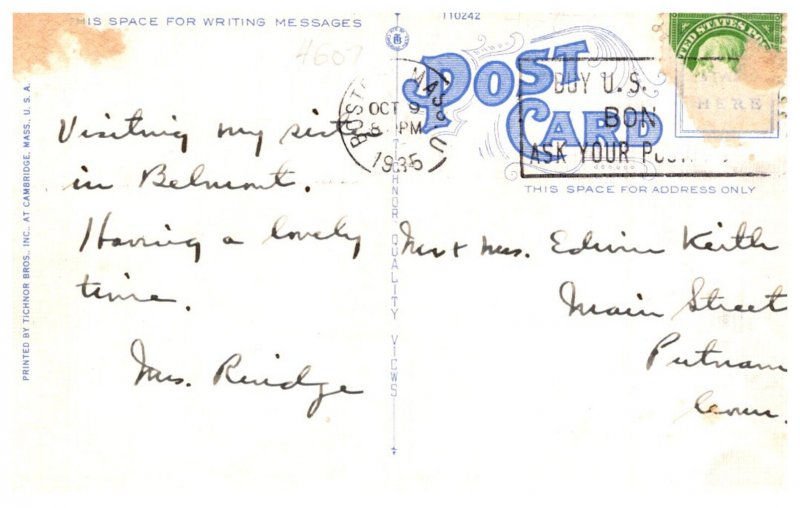 THIS SPACE FOR WRITING MESSAGES
110242
4607
POST CARD
UNITED STATES POS
HERE
BOSTON MASS.
OCT 9
8 PM
1935
BUY U.S.
BON
ASK YOUR POST
THIS SPACE FOR ADDRESS ONLY
PRINTED BY TICHNOR BROS., INC. AT CAMBRIDGE, MASS., U. S. A.
TICHNOR QUALITY VIEWS
Visiting my sister
in Belmont.
Having a lovely
time.
Mrs. Rindge
Mr + Mrs. Edwin Keith
Main Street
Putnam
Conn.